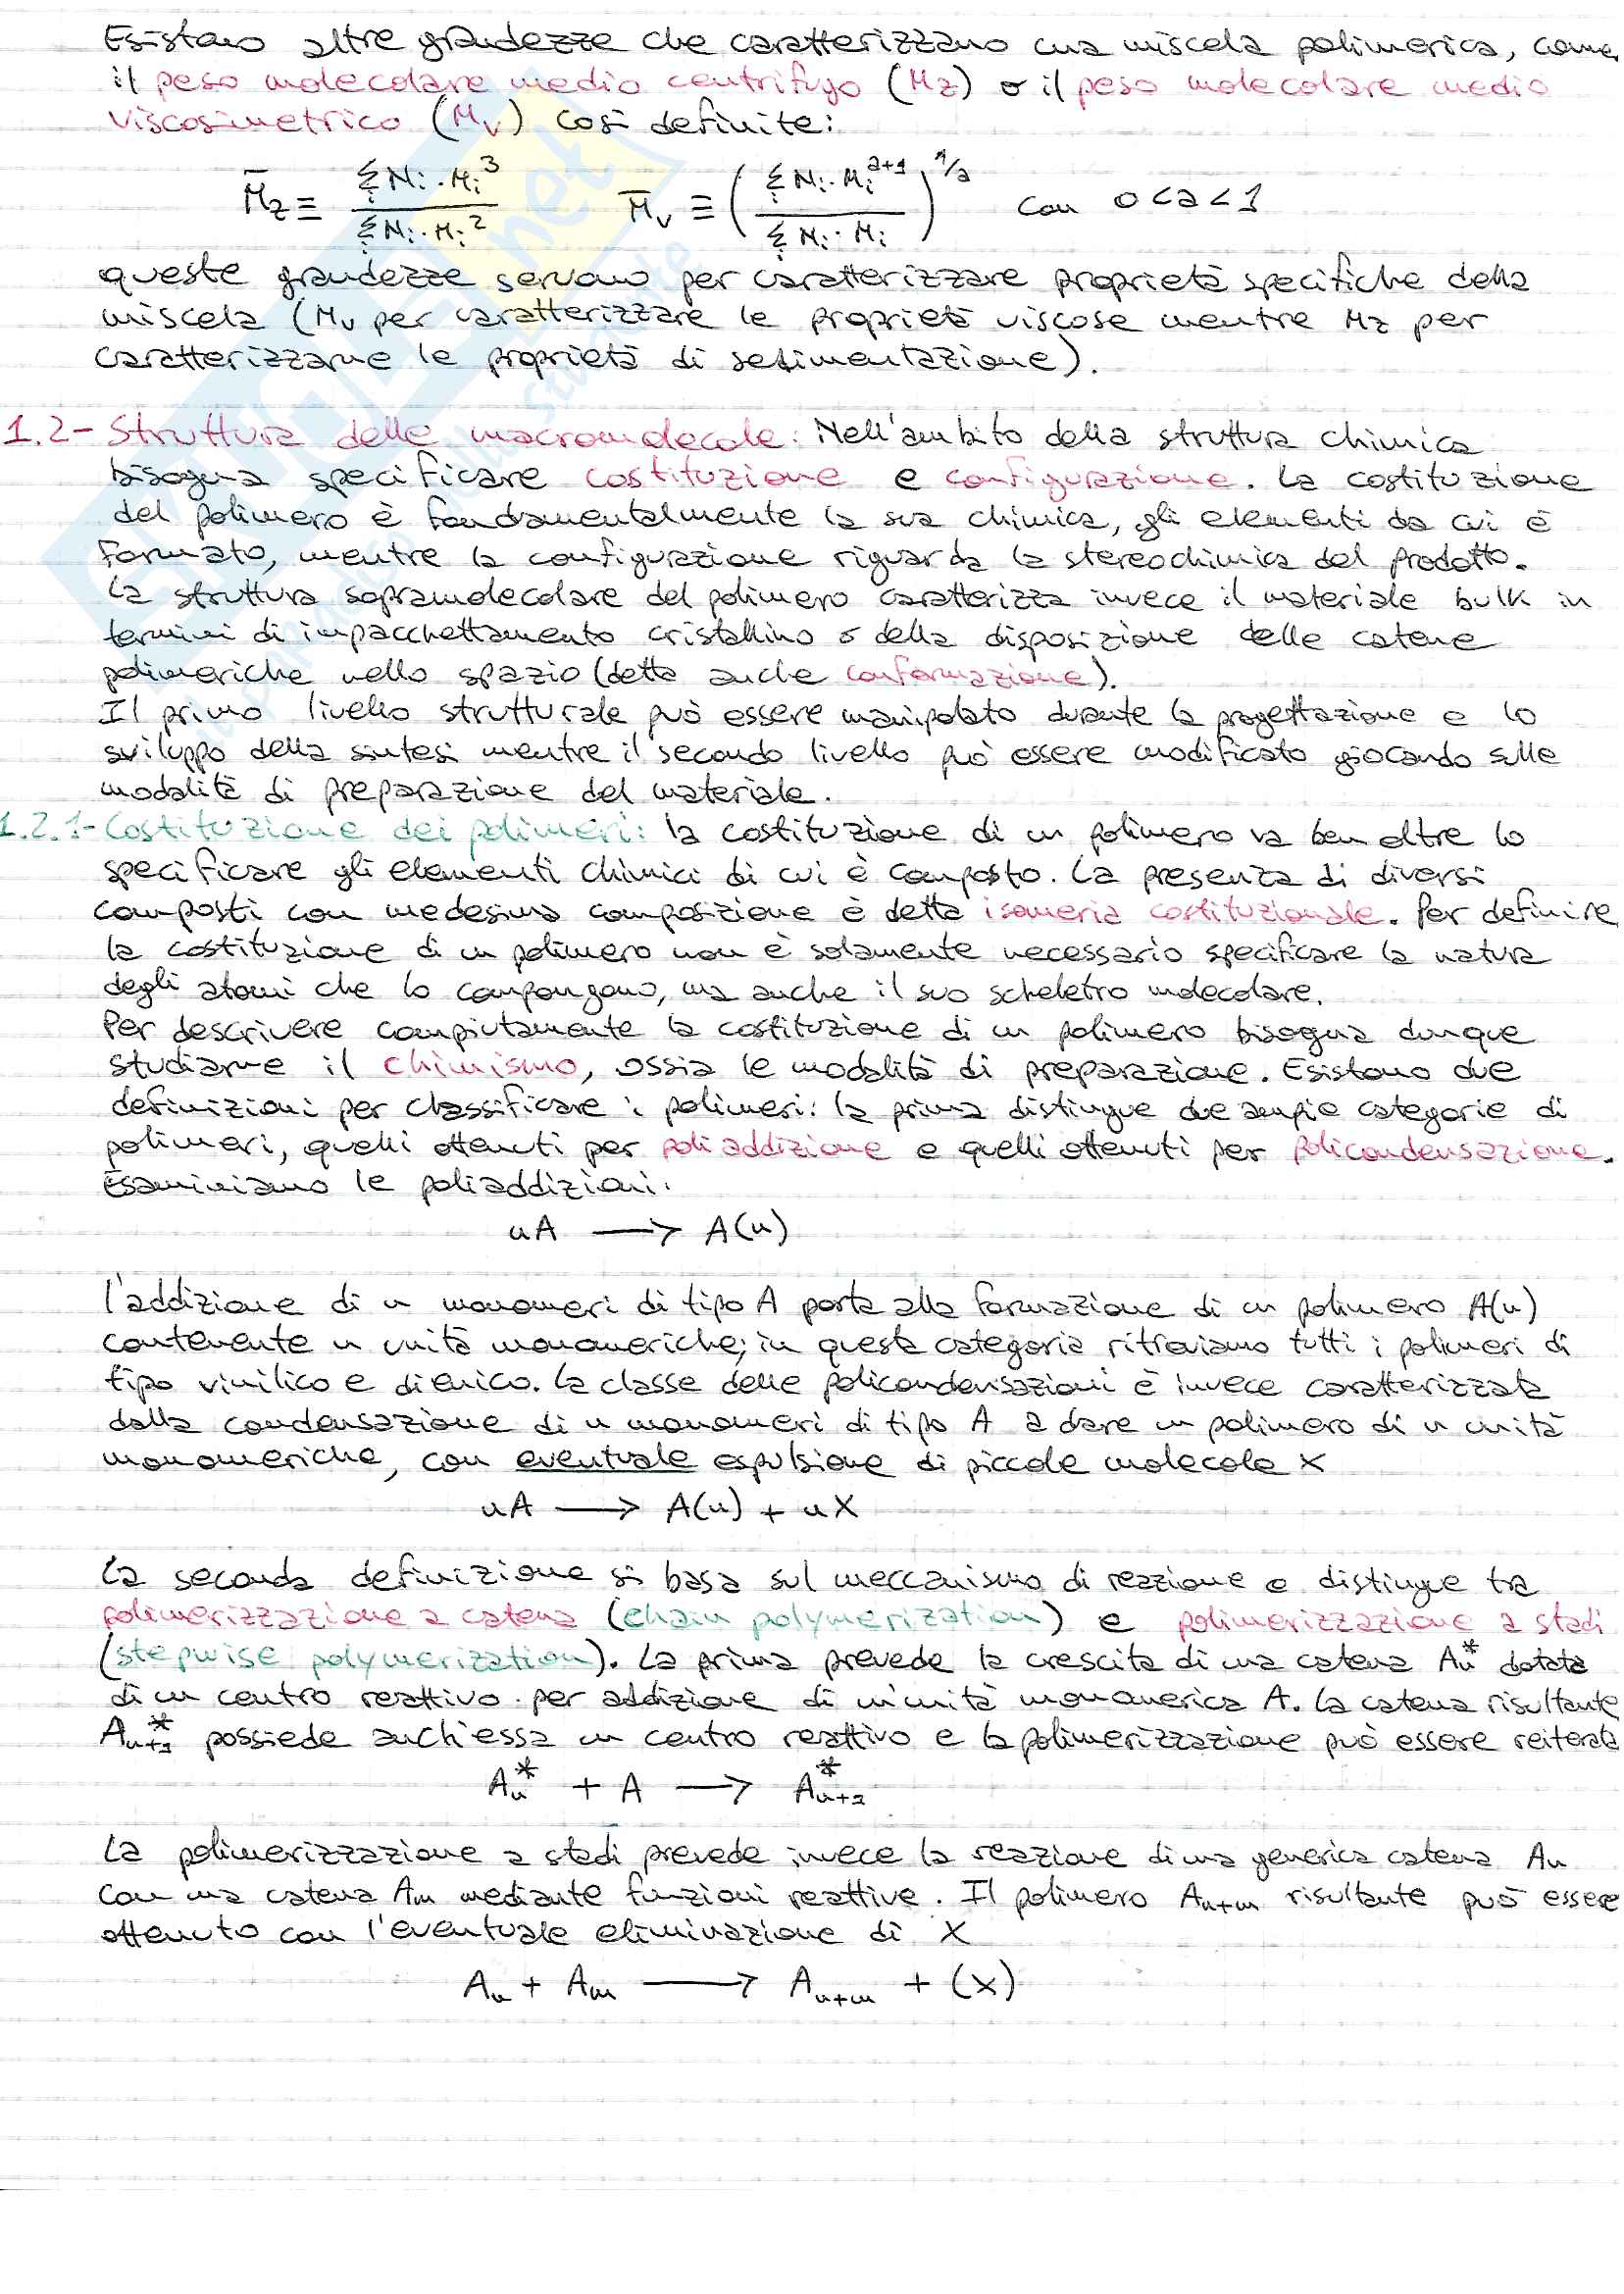 Esistono altre grandezze che caratterizzano una miscela polimerica, come
il peso molecolare medio centrifugo (Mz) o il peso molecolare medio
viscosimetrico (Mv) così definite:
M̄z ≡ Σi Ni · Mi³ / Σi Ni · Mi²   M̄v ≡ (Σi Ni · Mi^(a+1) / Σi Ni · Mi)^(1/a)   con 0<a<1
queste grandezze servono per caratterizzare proprietà specifiche della
miscela (Mv per caratterizzare le proprietà viscose mentre Mz per
caratterizzarne le proprietà di sedimentazione).
1.2- Struttura delle macromolecole: Nell'ambito della struttura chimica
bisogna specificare costituzione e configurazione. La costituzione
del polimero è fondamentalmente la sua chimica, gli elementi da cui è
formato, mentre la configurazione riguarda la stereochimica del prodotto.
La struttura sopramolecolare del polimero caratterizza invece il materiale bulk in
termini di impacchettamento cristallino o della disposizione delle catene
polimeriche nello spazio (detta anche conformazione).
Il primo livello strutturale può essere manipolato durante la progettazione e lo
sviluppo della sintesi mentre il secondo livello può essere modificato giocando sulle
modalità di preparazione del materiale.
1.2.1- Costituzione dei polimeri: la costituzione di un polimero va ben oltre lo
specificare gli elementi chimici di cui è composto. La presenza di diversi
composti con medesima composizione è detta isomeria costituzionale. Per definire
la costituzione di un polimero non è solamente necessario specificare la natura
degli atomi che lo compongono, ma anche il suo scheletro molecolare.
Per descrivere compiutamente la costituzione di un polimero bisogna dunque
studiarne il chimismo, ossia le modalità di preparazione. Esistono due
definizioni per classificare i polimeri: la prima distingue due ampie categorie di
polimeri, quelli ottenuti per poliaddizione e quelli ottenuti per policondensazione.
Esaminiamo le poliaddizioni:
nA → A(n)
l'addizione di n monomeri di tipo A porta alla formazione di un polimero A(n)
contenente n unità monomeriche; in questa categoria ritroviamo tutti i polimeri di
tipo vinilico e dienico. La classe delle policondensazioni è invece caratterizzata
dalla condensazione di n monomeri di tipo A a dare un polimero di n unità
monomeriche, con eventuale espulsione di piccole molecole X
nA → A(n) + nX
La seconda definizione si basa sul meccanismo di reazione e distingue tra
polimerizzazione a catena (chain polymerization) e polimerizzazione a stadi
(stepwise polymerization). La prima prevede la crescita di una catena An* dotata
di un centro reattivo per addizione di un'unità monomerica A. La catena risultante
An+1* possiede anch'essa un centro reattivo e la polimerizzazione può essere reiterata
An* + A → An+1*
La polimerizzazione a stadi prevede invece la reazione di una generica catena An
con una catena Am mediante funzioni reattive. Il polimero An+m risultante può essere
ottenuto con l'eventuale eliminazione di X
An + Am → An+m + (X)